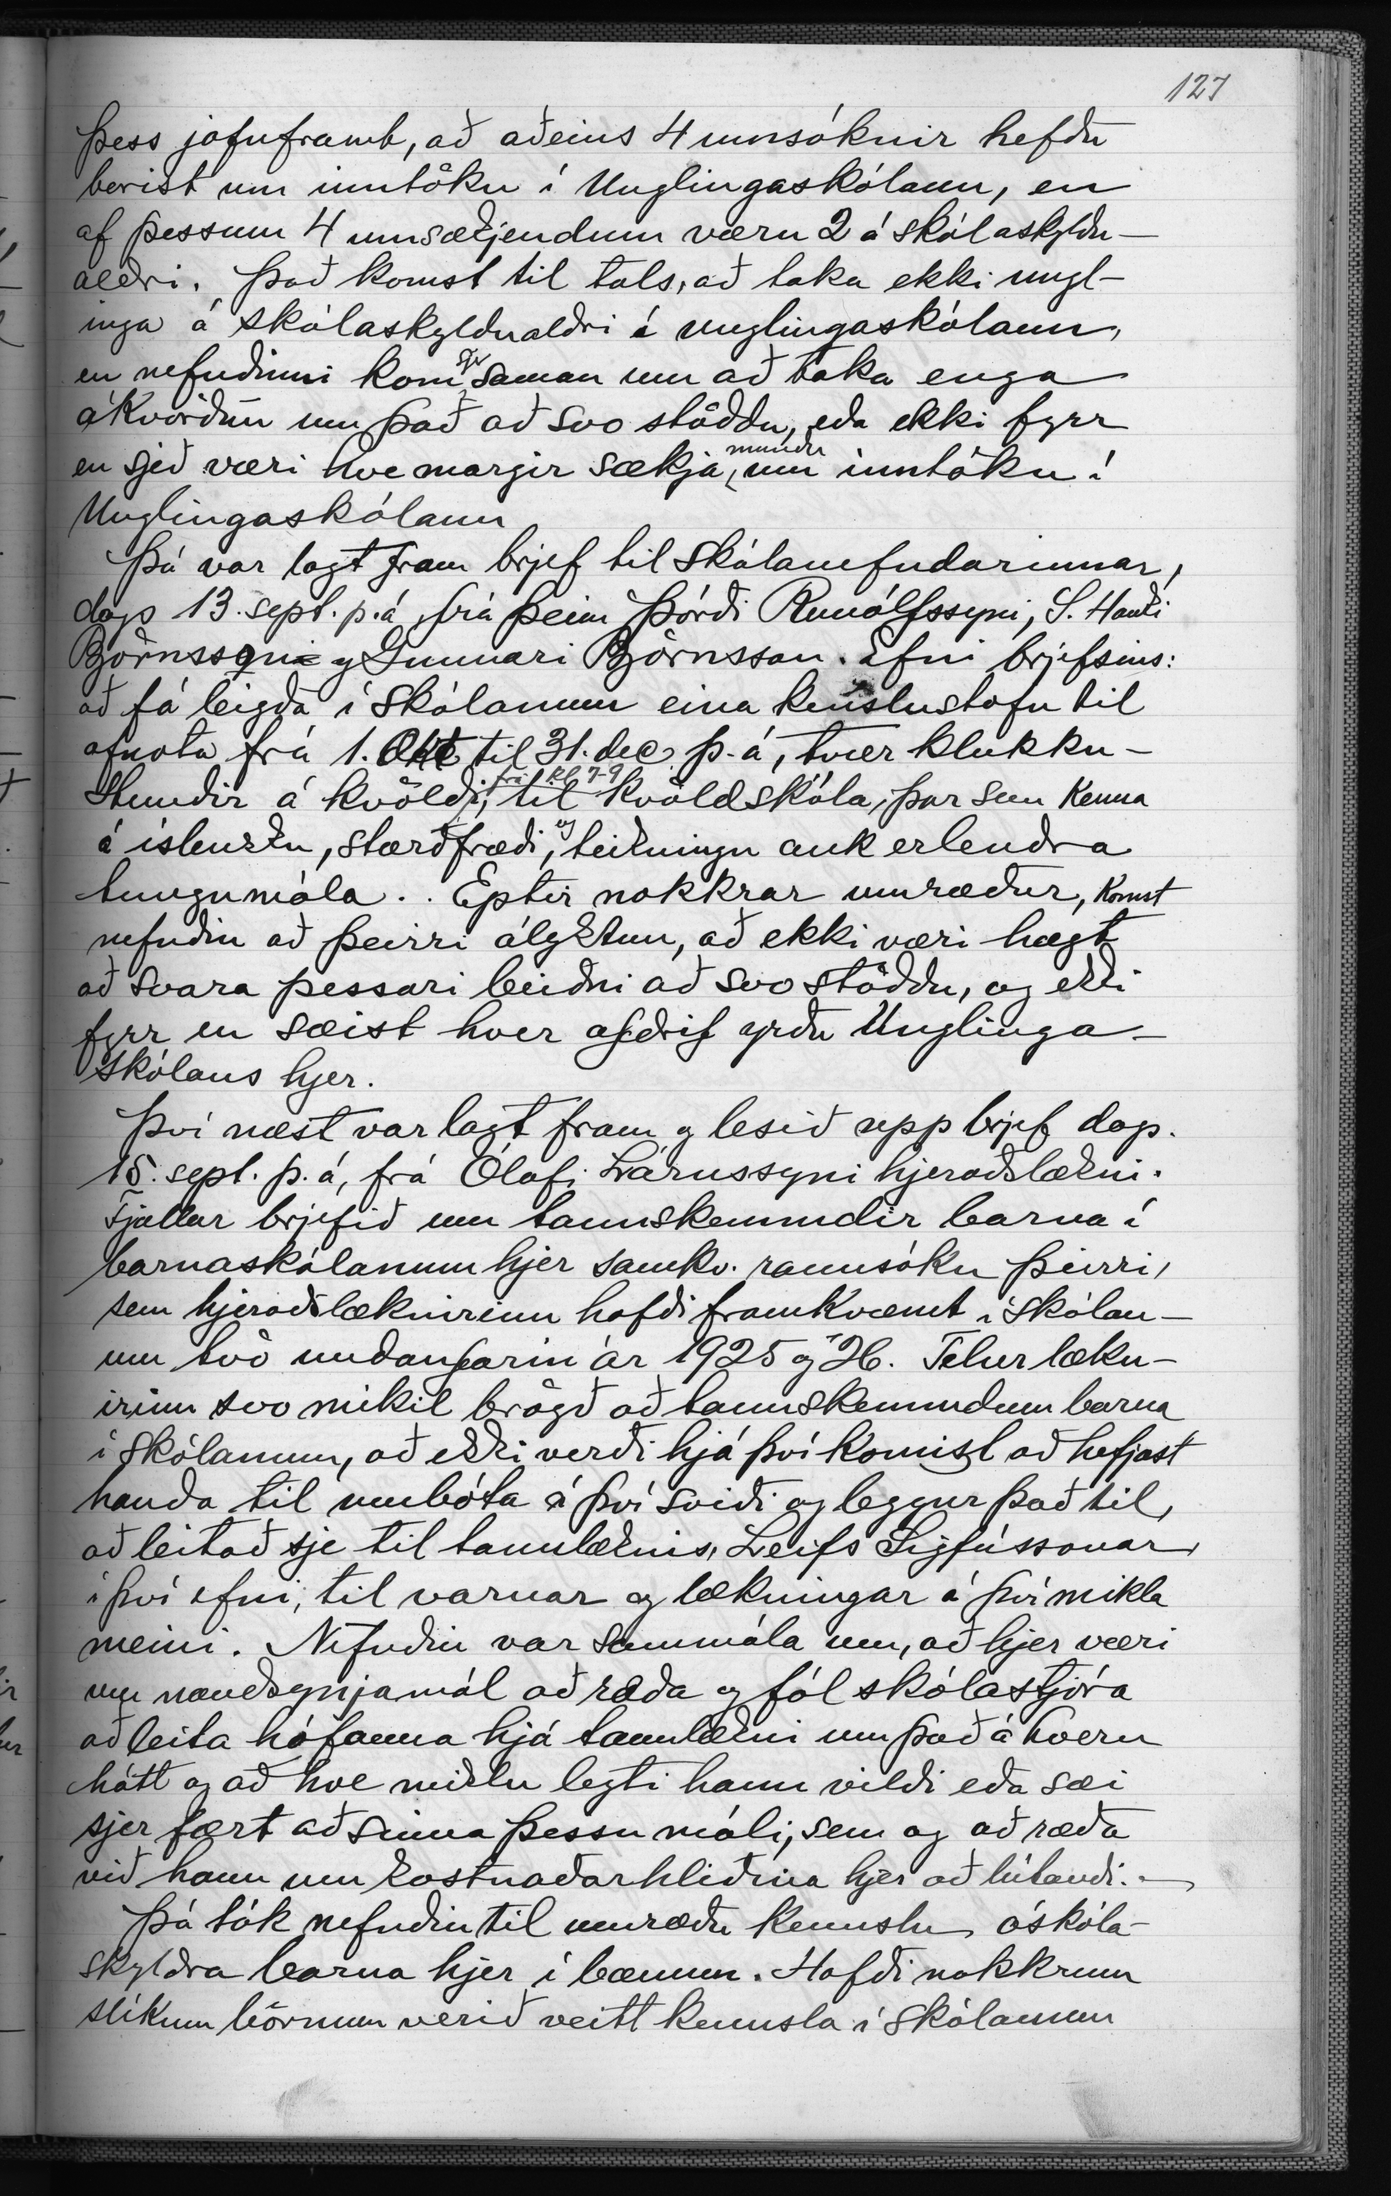 127
þess jafnframt, að aðeins 4 umsóknir hefðu
borist um inntöku í Unglingaskólann, en
af þessum 4 umsækjendum væru 2 á skólaskyldu-
aldri. Það komst til tals, að taka ekki ungl-
inga á skólaskyldualdri í unglingaskólann,
en nefndinni kom sjer saman um að taka enga
ákvörðun um það að svo stöddu, eða ekki fyrr
en sjeð væri hve margir sækja mundu um inntöku í
Unglingaskólann
Þá var lagt fram brjef til skólanefndarinnar,
dags 13. sept. þ.á. frá þeim Þórði Runólfssyni, S. Hauki
Björnssyni og Gunnari Björnsson. Efni brjefsins:
að fá leigða í skólanum eina kenslustofu til
afnota frá 1. Okt til 31. dec. þ.á, tvær klukku-
stundir á kvöldi, frá kl 7-9 til kvöldskóla, þar sem kenna
á íslensku, stærðfræði, og teikningu auk erlendra
tungumála. . Eptir nokkrar umræður, komst
nefndin að þeirri ályktun, að ekki væri hægt
að svara þessari beiðni að svo stöddu, og ekki
fyrr en sæist hver afdrif yrðu Unglinga-
skólans hjer.
Því næst var lagt fram og lesið upp brjef dags.
15. sept. þ.á, frá Ólafi Lárussyni hjeraðslækni.
Fjallar brjefið um tannskemmdir barna í
barnaskólanum hjer samkv. rannsókn þeirri,
sem hjeraðslæknirinn hafði framkvæmt í skólan-
um tvö undanfarin ár 1925 og '26. Telur lækn-
irinn svo mikil brögð að tannskemmdum barna
í skólanum, að ekki verði hjá því komist að hefjast
handa til umbóta á því sviði og leggur það til,
að leitað sje til tannlæknis, Leifs Sigfússonar,
í því efni, til varnar og lækningar á því mikla
meini. Nefndin var sammála um, að hjer væri
um nauðsynjamál að ræða og fól skólastjóra
að leita hófanna hjá tannlækni um það á hvern
hátt og að hve miklu leyti hann vildi eða sæi
sjer fært að sinna þessu máli, sem og að ræða
við hann um kostnaðarhliðina hjer að lútandi. -
Þá tók nefndin til umræðu kennslu óskóla-
skyldra barna hjer í bænum. Hafði nokkrum
slíkum börnum verið veitt kennsla í skólanum